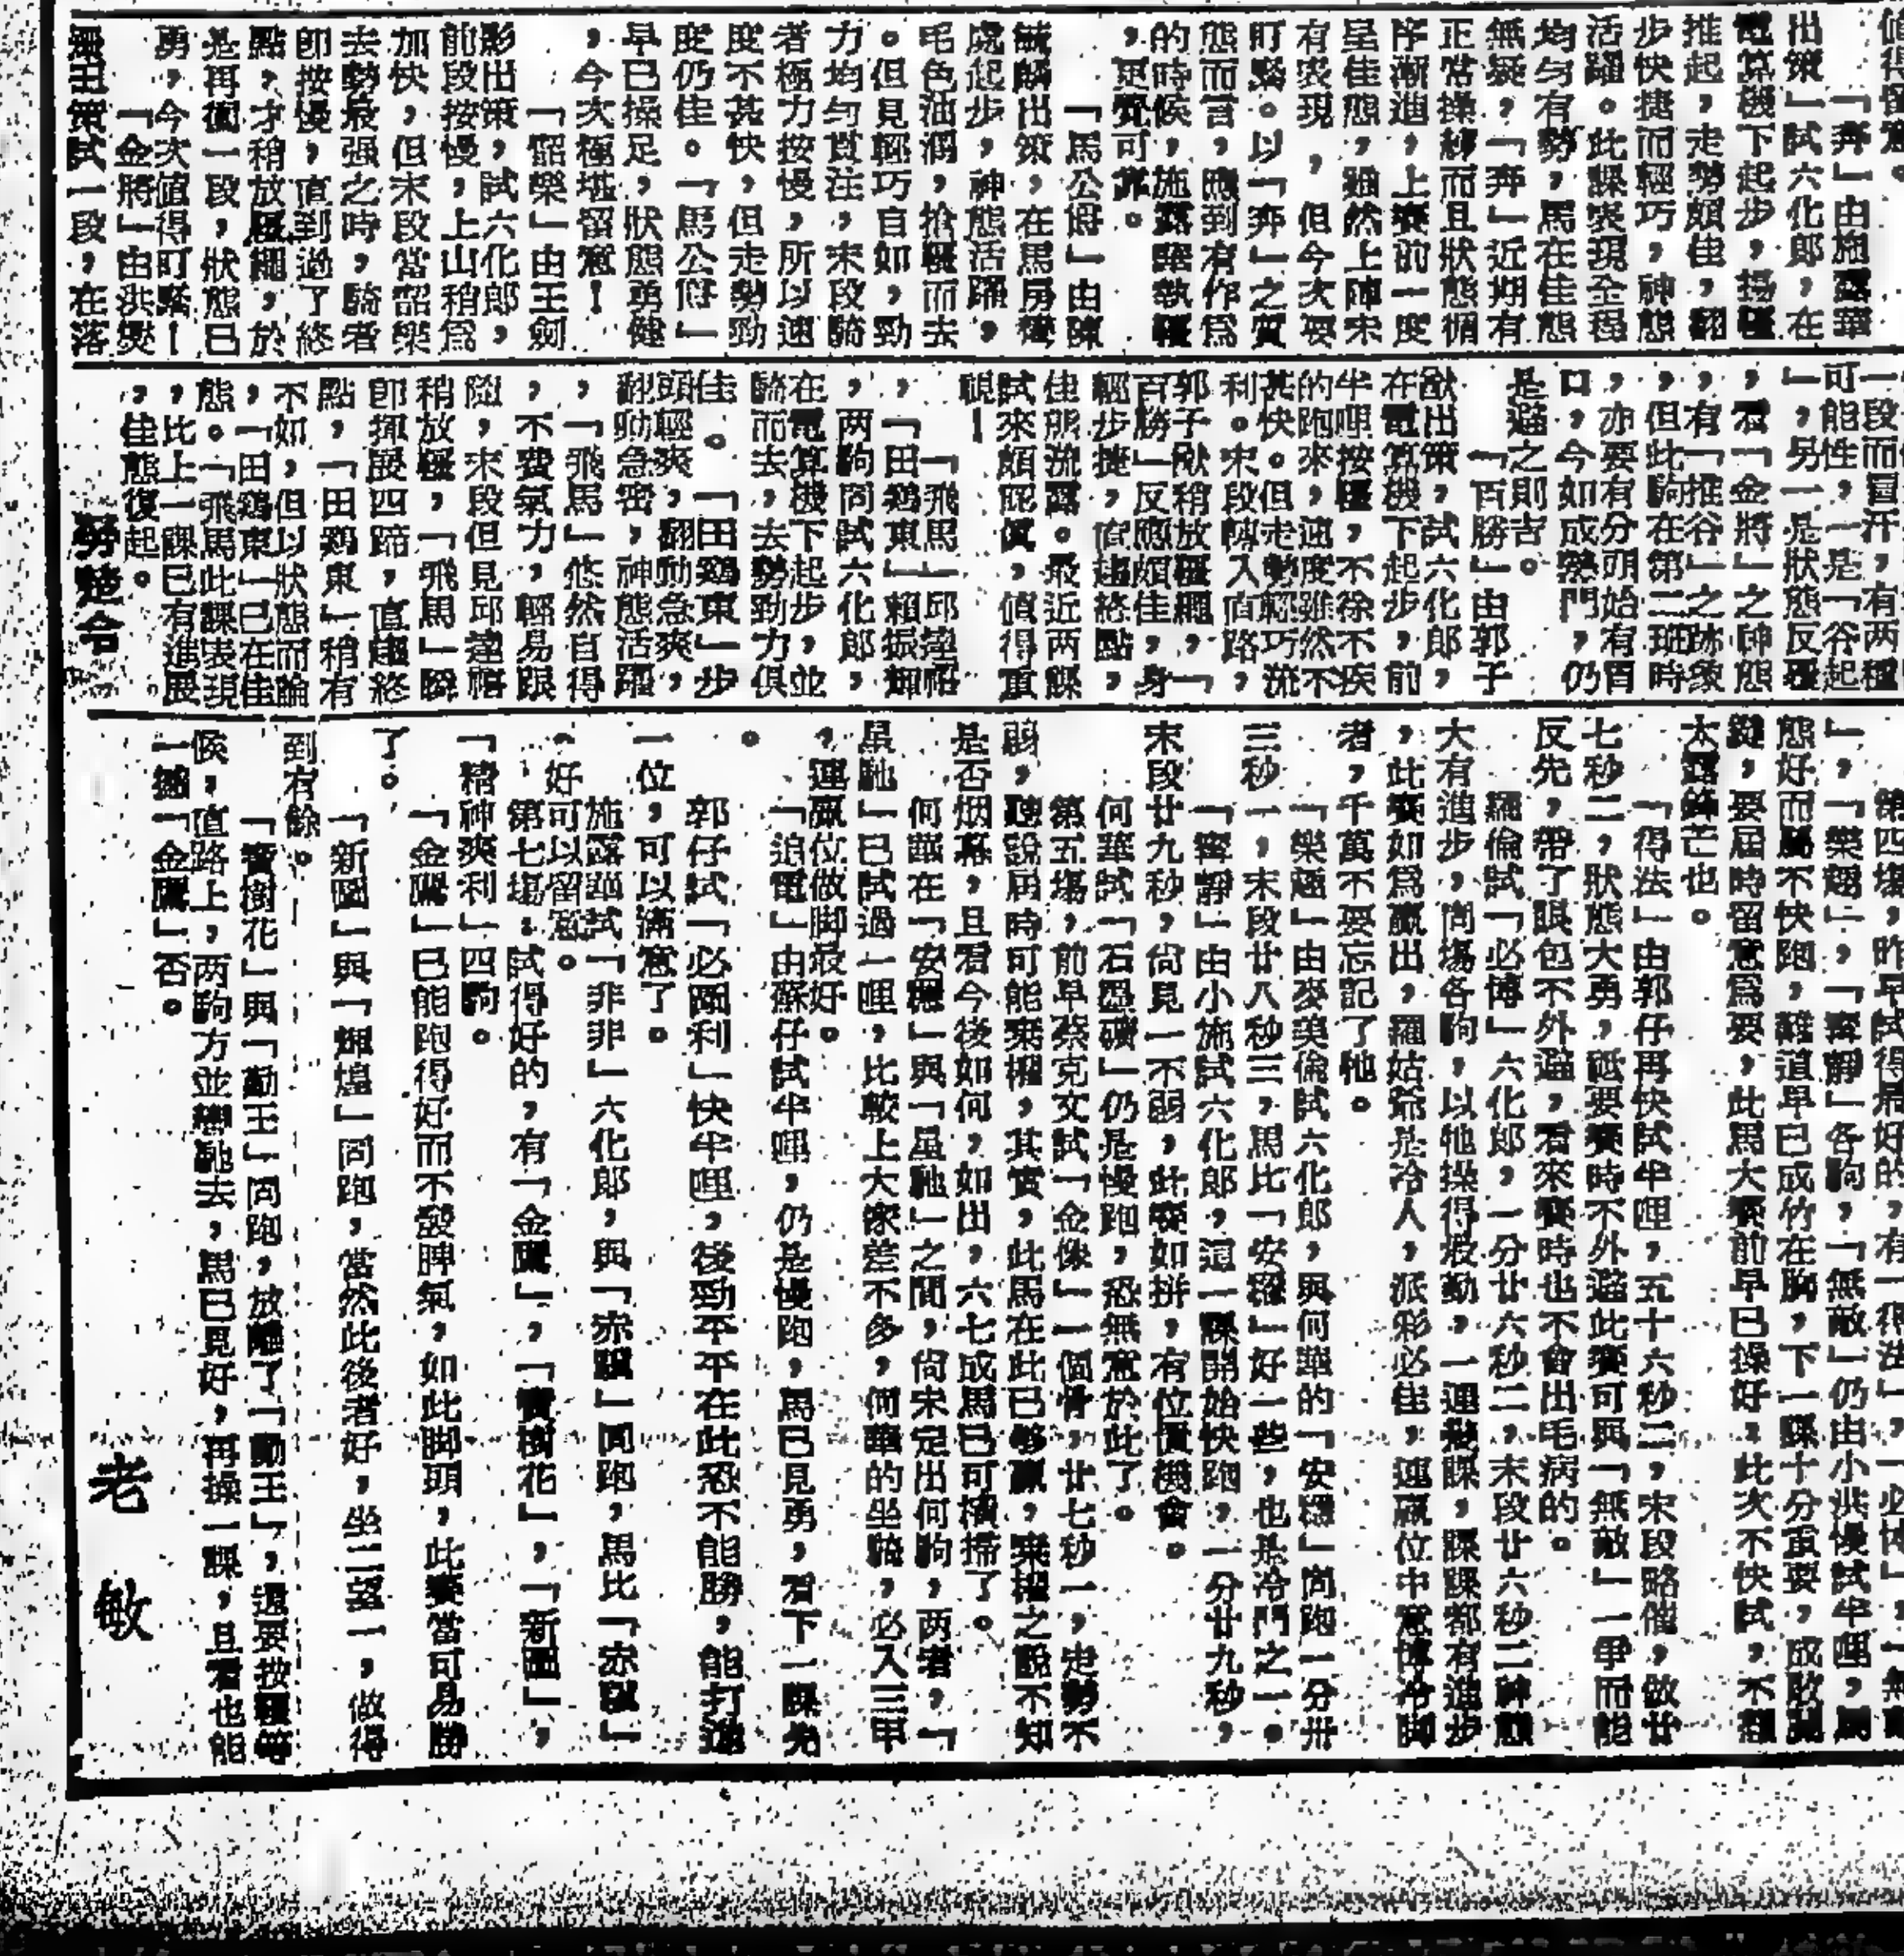 「奔」由施露華
出策」試六化郎，在
電算機下起步，
推起，走勢頗佳，翻
步快捷而輕巧，神態
活躍。此課表現全程
均勻有勢，馬在佳態
無疑，「奔」近期有
正常操練而且狀態循
序漸進，上賽前一度
呈佳態，雖然上陣未
有表現，但今次要
盯緊。以「奔」之質
態而言，應到有作爲
的時候，施露華執韁
，更覺可靠。
「馬公姆」由陳
毓麟出策，在馬房灣
處起步，神態活躍，
毛色油潤，搶韁而去
。但見輕巧自如，勁
力均勻貫注，末段騎
者極力按慢，所以速
度不甚快，但走勢勁
度仍佳。「馬公姆」
早已操足，狀態勇健
，今次極堪留意！
「韶樂」由王劍
影出策，試六化郎，
前段按慢，上山稍爲
加快，但末段當韶樂
去勢最强之時，騎者
卽按慢，直到過了終
點，才稍放韁繩，於
是再衝一段，狀態已
勇，今次値得盯緊！
「金將」由洪爕
策試一段，在落
一段而冒汗，有两種
可能性，一是「谷起
」，另一是狀態反覆
，看「金將」之神態
，有「推谷」之跡象
，但此駒在第二班時
，亦要有分明始有胃
口，今如成熱門，仍
是避之則吉。
「百勝」由郭子
猷出策，試六化郎，
在電算機下起步，前
半哩按韁，不徐不疾
的跑來，速度雖然不
甚快。但走勢輕巧流
利。末段轉入直路，
郭子猷稍放韁繩，「
百勝」反應頗佳，身
輕步捷，直趨終點，
佳態流露。最近两課
試來頗認眞，値得重
視！
「飛馬」邱達禧
，「田鷄東」賴振輝
，两駒同試六化郎，
在電算機下起步，並
騎而去，去勢勁力俱
佳。「田鷄東」步
頭輕爽，翻動急爽，
翻動急密，神態活躍
，「飛馬」悠然自得
，不費氣力，輕易跟
隨，末段但見邱達禧
稍放韁，「飛馬」瞬
卽揮展四蹄，直趨終
點，「田鷄東」稍有
不如，但以狀態而論
，「田鷄東」已在佳
態。「飛馬此課表現
，比上一課已有進展
，佳態復起。
勞楚令
第四塲，昨早試得最好的，有「得法」，「必博」，「無敵
」，「樂趣」，「寧靜」各駒，「無敵」仍由小洪慢試半哩，
態好而屬不快跑，難道早已成竹在胸，下一課十分重要，成敗
，要屆時留意爲要，此馬大賽前早已操好，此次不快試，不想
太露鋒芒也。
「得法」由郭仔再快試半哩，五十六秒二，末段略催，做廿
七秒二，狀態大勇，祗要賽時不外溢此賽可與「無敵」一爭而能
反先，帶了眼包不外溢，看來賽時也不會出毛病的。
羅倫試「必博」六化郎，一分廿六秒二，末段廿六秒二神態
大有進步，同塲各駒，以牠操得最勤，一連幾課，課課都有進步
，此賽如爲贏出，羅姑爺是冷人，派彩必佳，連贏位中意博冷脚
者，千萬不要忘記了牠。
「樂趣」由麥美倫試六化郎，與何華的「安穩」同跑一分卅
三秒一，末段廿八秒三，馬比「安穩」好一些，也是冷門之一。
「寧靜」由小施試六化郎，這一課開始快跑，一分廿九秒，
末段廿九秒，尙見一不弱，此賽如拼，有位置機會。
何華試「石墨礦」仍是慢跑，恐無意於此了。
第五塲，前早蔡克文試「金像」一個骨，廿七秒一，走勢不
弱，聽說屆時可能棄權，其實，此馬在此已够贏，棄權之說不知
是否烟幕，且看今後如何，如出，六七成馬已可橫掃了。
何華在「安穩」與「星馳」之間，尙未定出何駒，两者，「
星馳」已試過一哩，比較上大家差不多，何華的坐騎，必入三甲
，連贏位做脚最好。
「追電」由蘇仔試半哩，仍是慢跑，馬已見勇，看下一課先
。
郭仔試「必勝利」快半哩，後勁平平在此恐不能勝，能打進
一位，可以滿意了。
施露華試「非非」六化郎，與「赤驥」同跑，馬比「赤驥」
，好可以留意。
第七塲：試得好的，有「金鷹」，「寶樹花」，「新圖」，
「精神爽利」四駒。
「金鷹」已能跑得好而不發脾氣，如此脚頭，此賽當可易勝
了。
「新圖」與「輝煌」同跑，當然此後者好，坐二望一，做得
到有餘。
「寶樹花」與「勤王」同跑，放離了「勤王」，還要按韁等
候，値路上，两駒方並轡馳去，馬已見好，再操一課，且看也能
一撼「金鷹」否。
老敏